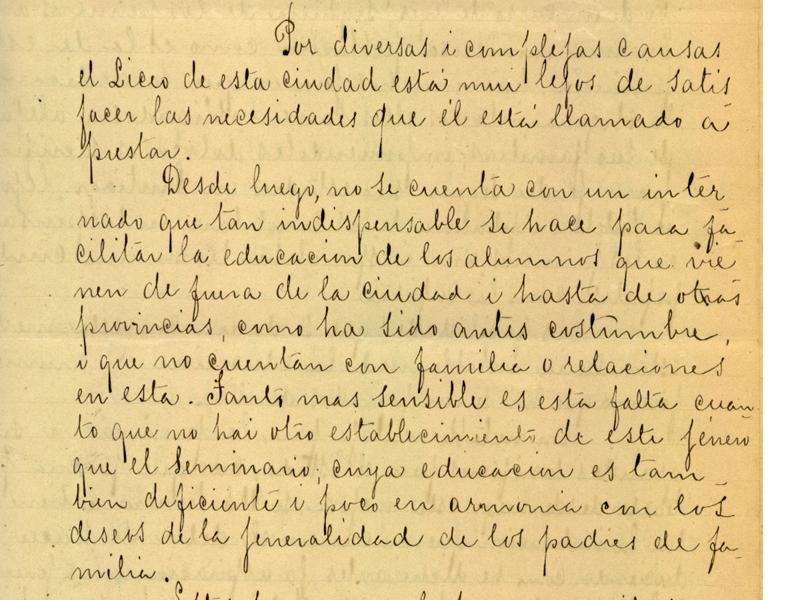 Por diversas i complejas causas
el Liceo de esta ciudad está mui lejos de satis
facer las necesidades que él está llamado á
prestar.
Desde luego, no se cuenta con un inter
nado que tan indispensable se hace para fa-
cilitar la educacion de los alumnos que vie
nen de fuera de la ciudad i hasta de otras
provincias, como ha sido antes costumbre,
i que no cuentan con familia o relaciones
en esta. Tanto mas sensible es esta falta cuan
to que no hai otro establecimiento de este jénero
que el Seminario; cuya educacion es tam-
bien deficiente i poco en armonia con los
deseos de la jeneralidad de los padres de fa-
milia.